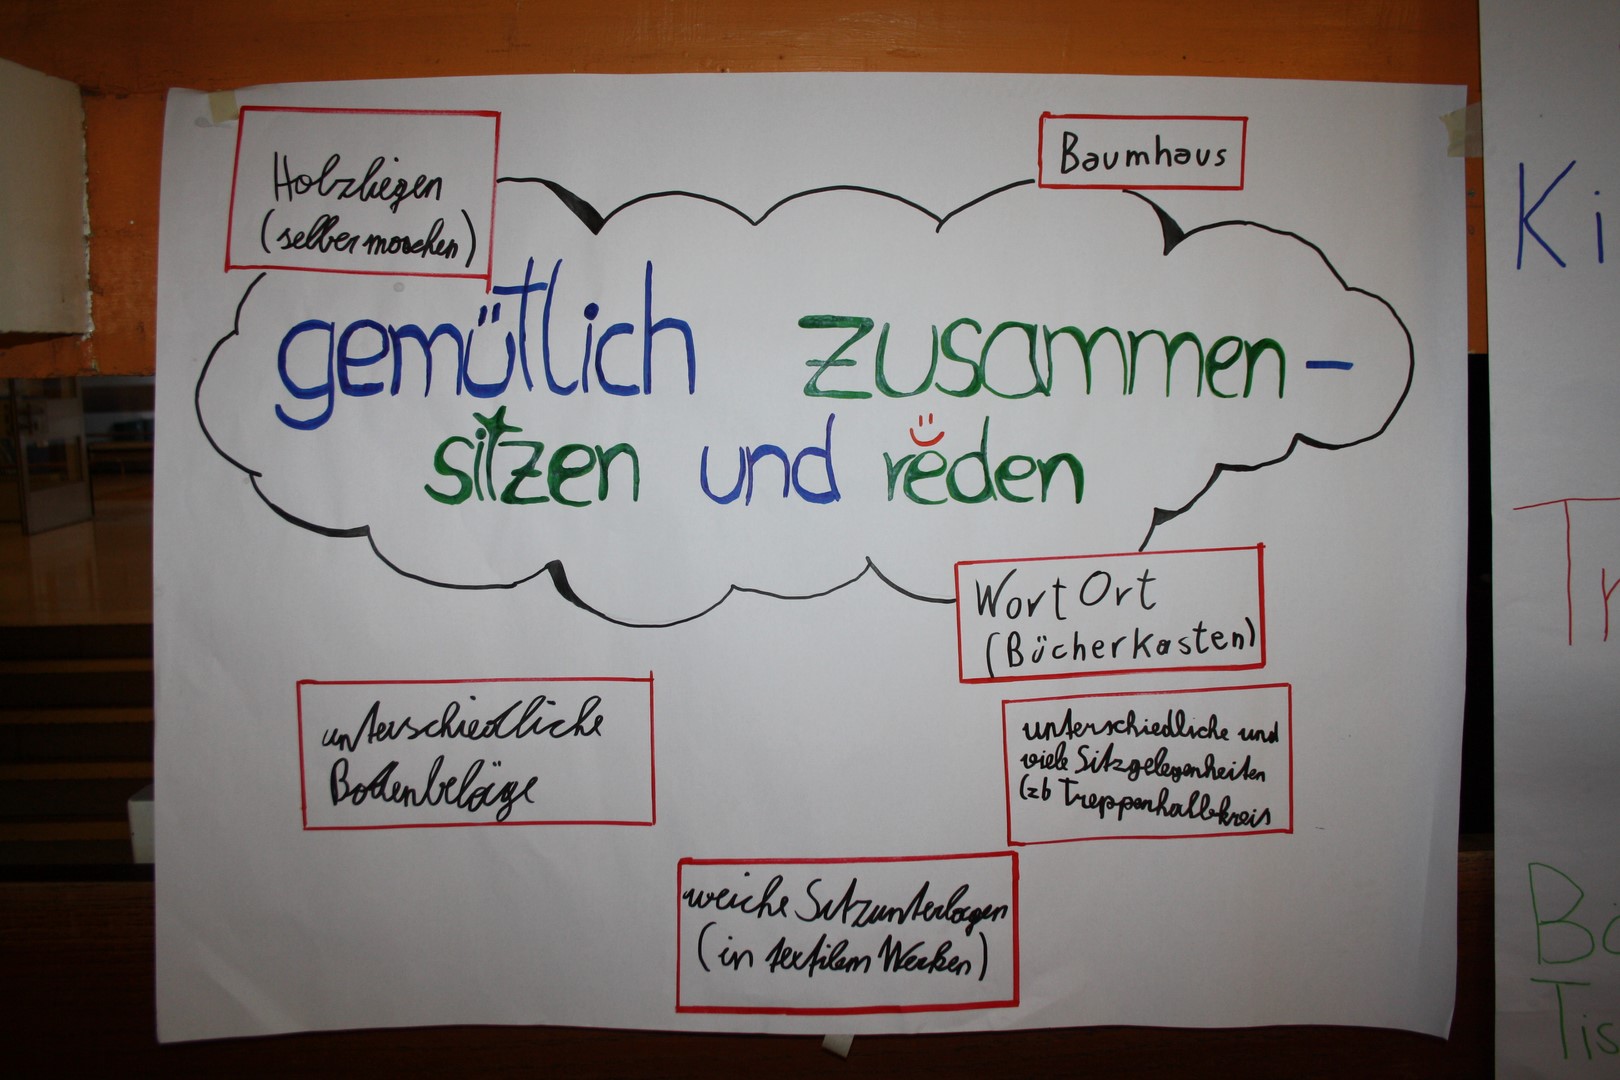 Holzliegen
(selber machen)
Baumhaus
gemütlich zusammen-
sitzen und reden
Wort Ort
(Bücherkasten)
unterschiedliche
Bodenbeläge
unterschiedliche und
viele Sitzgelegenheiten
(zb Treppenhalbkreis
weiche Sitzunterlagen
(in textilem Werken)
Ki
Tr
Bä
Tis